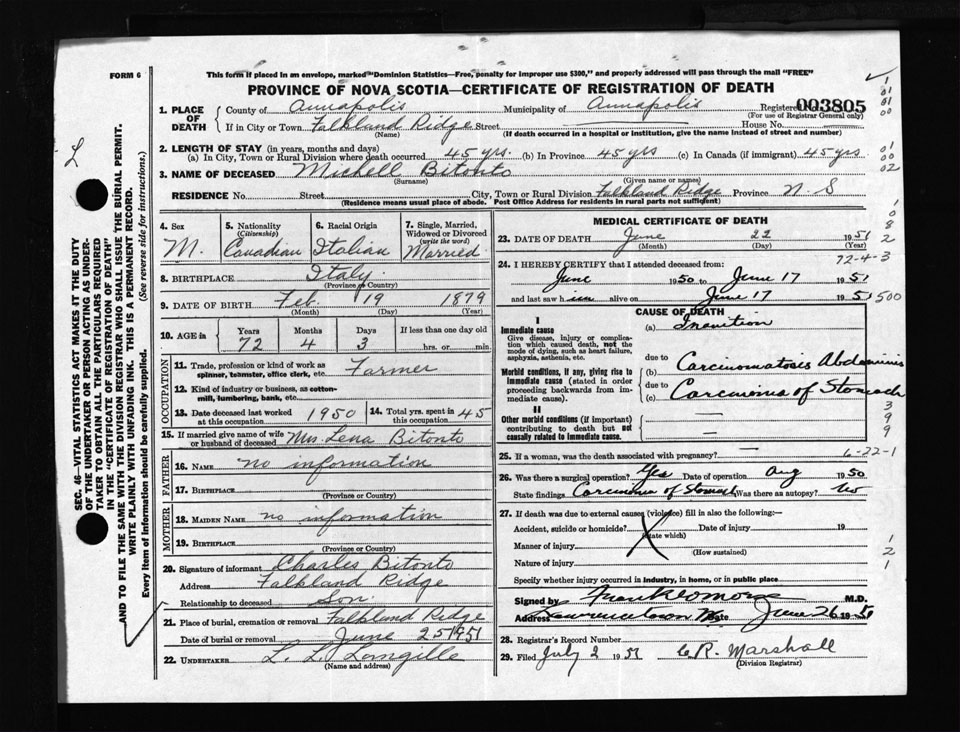 FORM 6
This form if placed in an envelope, marked "Dominion Statistics—Free, penalty for improper use $300," and properly addressed will pass through the mail "FREE"
PROVINCE OF NOVA SCOTIA—CERTIFICATE OF REGISTRATION OF DEATH
1. PLACE OF DEATH
County of Annapolis Municipality of Annapolis Registered No. 003805
(For use of Registrar General only)
If in City or Town Falkland Ridge Street House No.
(Name) (If death occurred in a hospital or institution, give the name instead of street and number)
2. LENGTH OF STAY (in years, months and days)
(a) In City, Town or Rural Division where death occurred 45 yrs. (b) In Province 45 yrs (c) In Canada (if immigrant) 45 yrs
3. NAME OF DECEASED Michell Bitonto
(Surname) (Given name or names)
RESIDENCE No. Street City, Town or Rural Division Falkland Ridge Province N. S
(Residence means usual place of abode. Post Office Address for residents in rural parts not sufficient)
4. Sex M.
5. Nationality (Citizenship) Canadian
6. Racial Origin Italian
7. Single, Married, Widowed or Divorced (write the word) Married
8. BIRTHPLACE Italy
(Province or Country)
9. DATE OF BIRTH Feb. 19 1879
(Month) (Day) (Year)
10. AGE in Years 72 Months 4 Days 3 If less than one day old hrs. or min.
OCCUPATION
11. Trade, profession or kind of work as spinner, teamster, office clerk, etc. Farmer
12. Kind of industry or business, as cotton-mill, lumbering, bank, etc.
13. Date deceased last worked at this occupation 1950
14. Total yrs. spent in this occupation 45
15. If married give name of wife or husband of deceased Mrs. Lena Bitonto
FATHER
16. NAME no information
17. BIRTHPLACE
(Province or Country)
MOTHER
18. MAIDEN NAME no information
19. BIRTHPLACE
(Province or Country)
20. Signature of informant Charles Bitonto
Address Falkland Ridge
Relationship to deceased Son
21. Place of burial, cremation or removal Falkland Ridge
Date of burial or removal June 25 1951
22. UNDERTAKER L. L. Longille
(Name and address)
MEDICAL CERTIFICATE OF DEATH
23. DATE OF DEATH June 22 1951
(Month) (Day) (Year)
72-4-3
24. I HEREBY CERTIFY that I attended deceased from:
June 1950 to June 17 1951
and last saw him alive on June 17 1951
500
CAUSE OF DEATH
I
Immediate cause
Give disease, injury or complication which caused death, not the mode of dying, such as heart failure, asphyxia, asthenia, etc.
(a) Inanition
due to
Morbid conditions, if any, giving rise to immediate cause (stated in order proceeding backwards from immediate cause).
(b) Carcinomatosis Abdominis
due to
(c) Carcinoma of Stomach
II
Other morbid conditions (if important) contributing to death but not causally related to immediate cause.
25. If a woman, was the death associated with pregnancy?
6-22-1
26. Was there a surgical operation? Yes Date of operation Aug 1950
State findings Carcinoma of Stomach Was there an autopsy? No
27. If death was due to external causes (violence) fill in also the following:—
Accident, suicide or homicide? Date of injury 19
(State which)
Manner of injury
(How sustained)
Nature of injury
Specify whether injury occurred in industry, in home, or in public place
Signed by M.D.
Address Date June 26 1951
28. Registrar's Record Number
29. Filed July 2 1951 C. R. Marshall
(Division Registrar)
SEC. 46—VITAL STATISTICS ACT MAKES IT THE DUTY
OF THE UNDERTAKER OR PERSON ACTING AS UNDER-
TAKER TO OBTAIN ALL THE PARTICULARS REQUIRED
IN THE "CERTIFICATE OF REGISTRATION OF DEATH"
AND TO FILE THE SAME WITH THE DIVISION REGISTRAR WHO SHALL ISSUE THE BURIAL PERMIT.
WRITE PLAINLY WITH UNFADING INK. THIS IS A PERMANENT RECORD.
Every item of information should be carefully supplied. (See reverse side for instructions.)